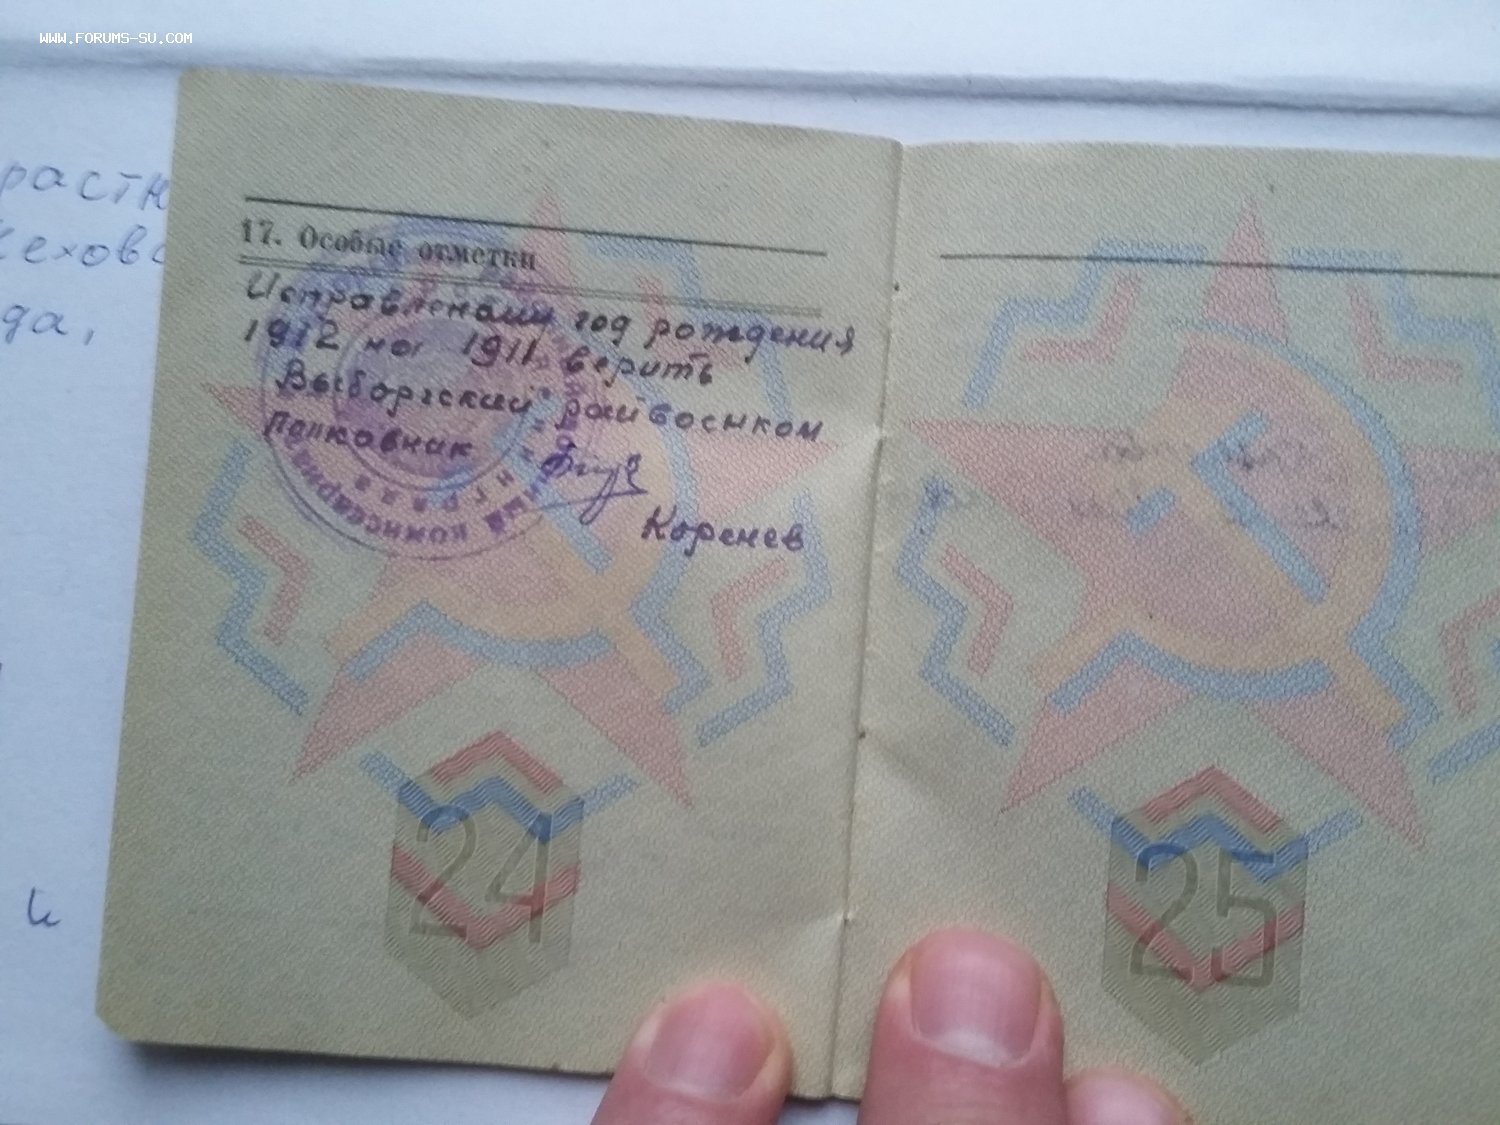 WWW.FORUMS-SU.COM
17. Особые отметки
Исправленому год рождения
1912 на 1911 верить
Выборгский райвоенком
Полковник
Коренев
комиссариат
24
25
да,
и